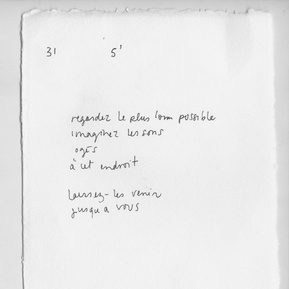 31 5'
regardez le plus loin possible
imaginez les sons
à cet endroit
laissez-les venir
jusqu'à vous